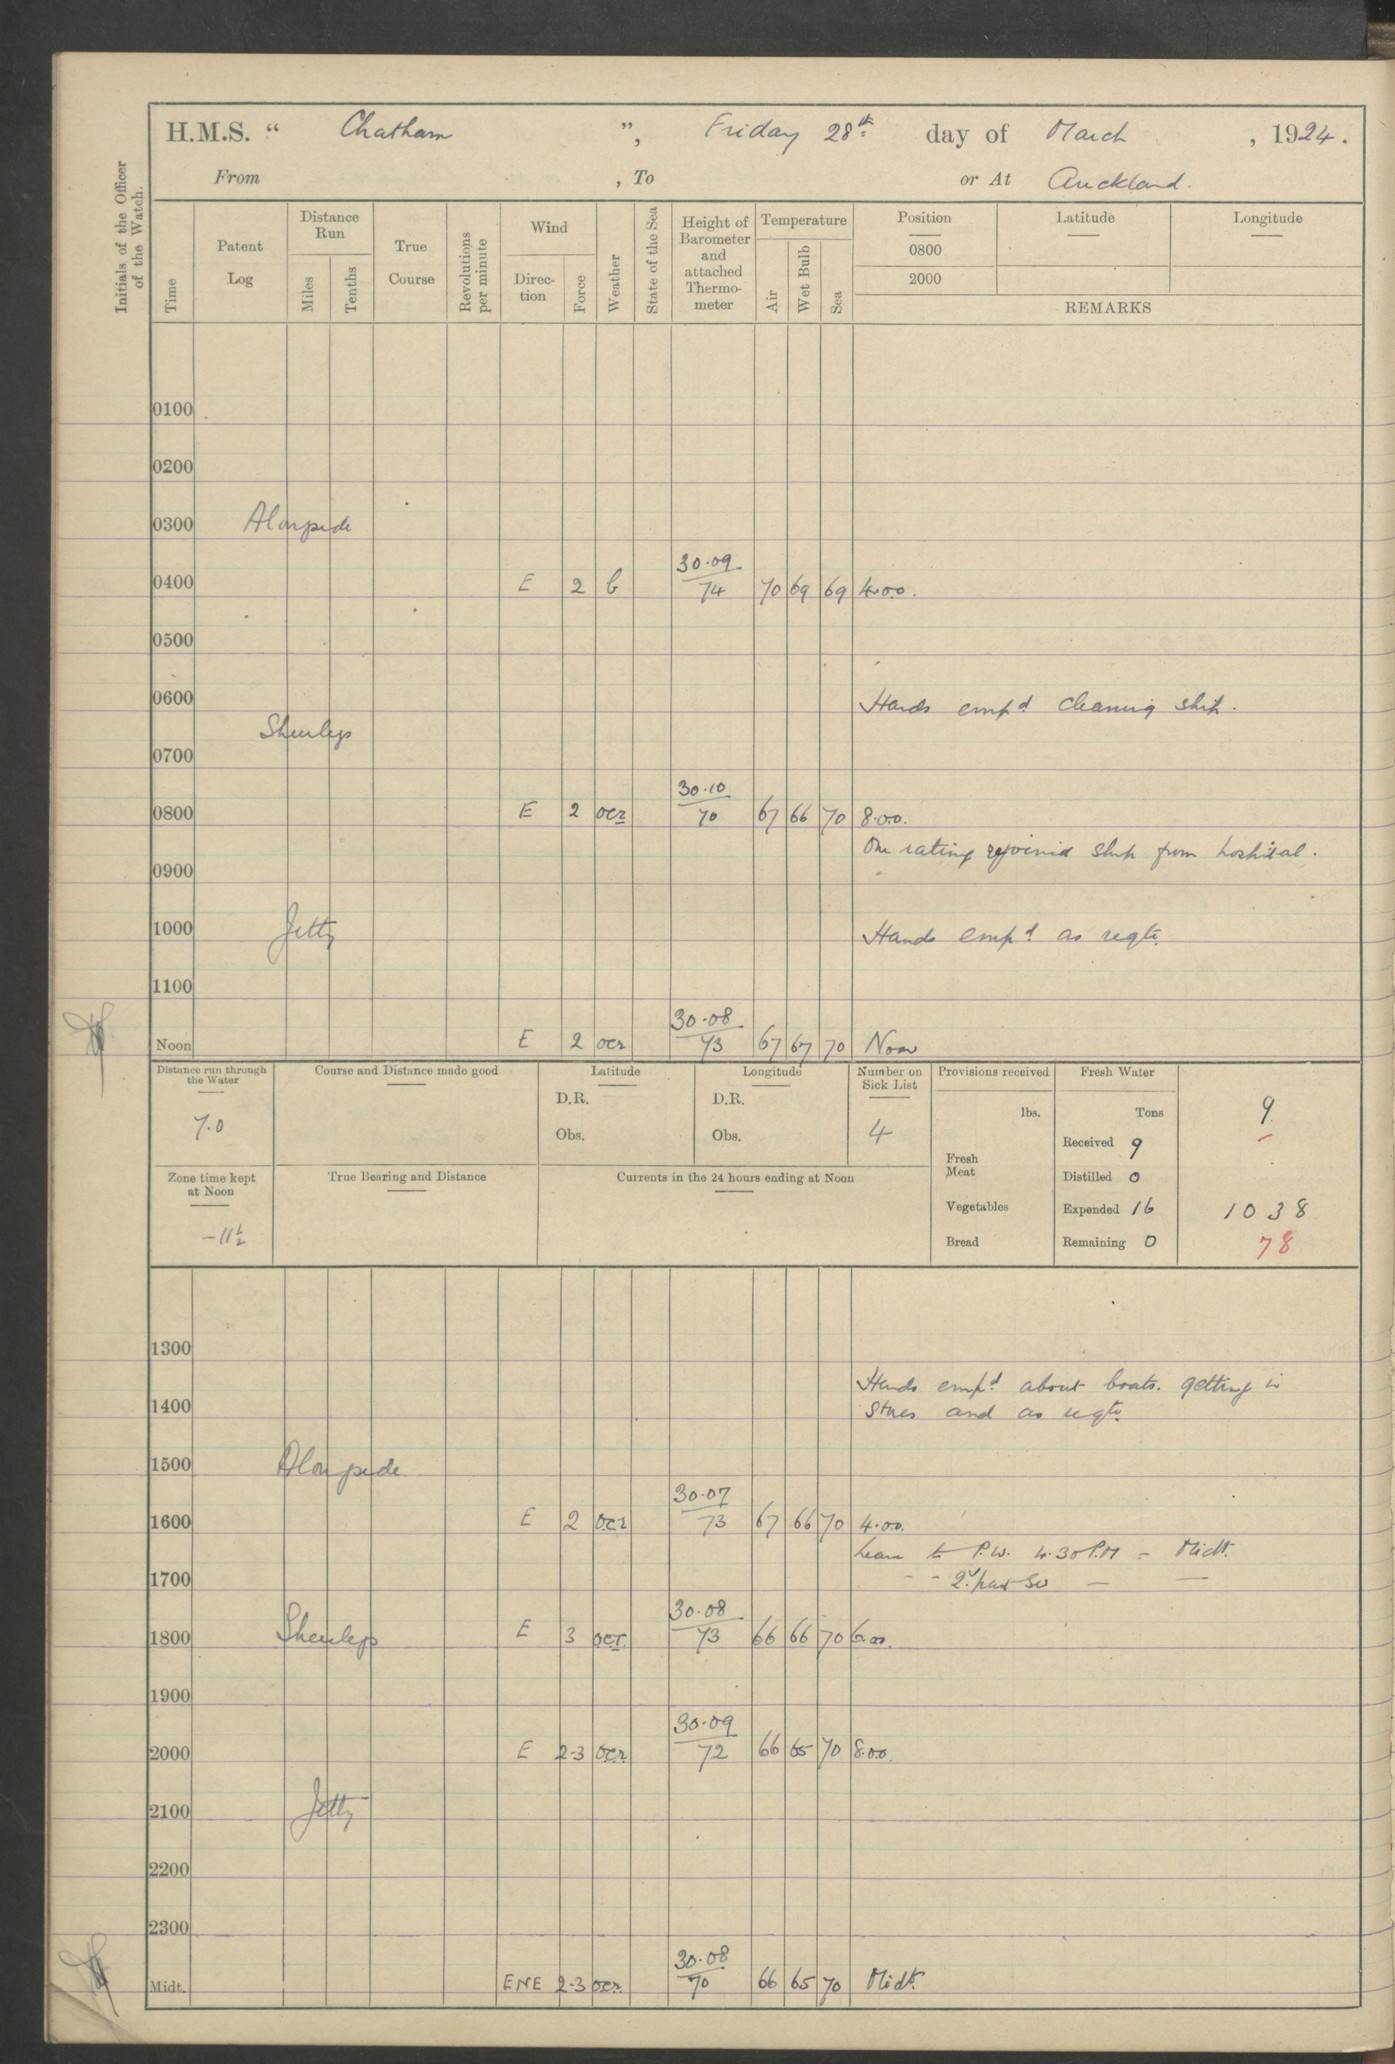 H.M.S. “ Chatham ”, Friday 28th day of March , 1924.
From , To or At Auckland.
Initials of the Officer of the Watch.
Time
Patent Log
Distance Run
Miles
Tenths
True Course
Revolutions per minute
Wind
Direc-tion
Force
Weather
State of the Sea
Height of Barometer and attached Thermo-meter
Temperature
Air
Wet Bulb
Sea
Position
0800
2000
Latitude
Longitude
REMARKS
0100
0200
0300 Alongside
30.09
0400 E 2 b 74 70 69 69 4.00.
0500
0600
Hands emp'd cleaning ship.
0700
30.10
0800 E 2 ocr 70 67 66 70 8.00.
One rating rejoined ship from hospital.
0900
1000 Jetty Hands emp'd as reqte.
1100
30.08
Noon E 2 ocr 73 67 67 70 Noon
Distance run through the Water
7.0
Zone time kept at Noon
-11½
Course and Distance made good
True Bearing and Distance
Latitude
D.R.
Obs.
Longitude
D.R.
Obs.
Currents in the 24 hours ending at Noon
Number on Sick List
4
Provisions received
lbs.
Fresh Meat
Vegetables
Bread
Fresh Water
Tons
Received 9
Distilled 0
Expended 16
Remaining 0
9
1038
78
1300
Hands emp'd about boats. getting in
1400 stores and as reqte.
1500 Alongside
30.07
1600 E 2 ocr 73 67 66 70 4.00.
Leave to P.W. 4.30 P.M - Midt.
1700 - - 2nd part — —
30.08
1800 E 3 ocr 73 66 66 70 6.00.
1900
30.09
2000 E 2-3 ocr 72 66 65 70 8.00.
2100 Jetty
2200
2300
30.08
Midt. ENE 2-3 ocr 70 66 65 70 Midt.